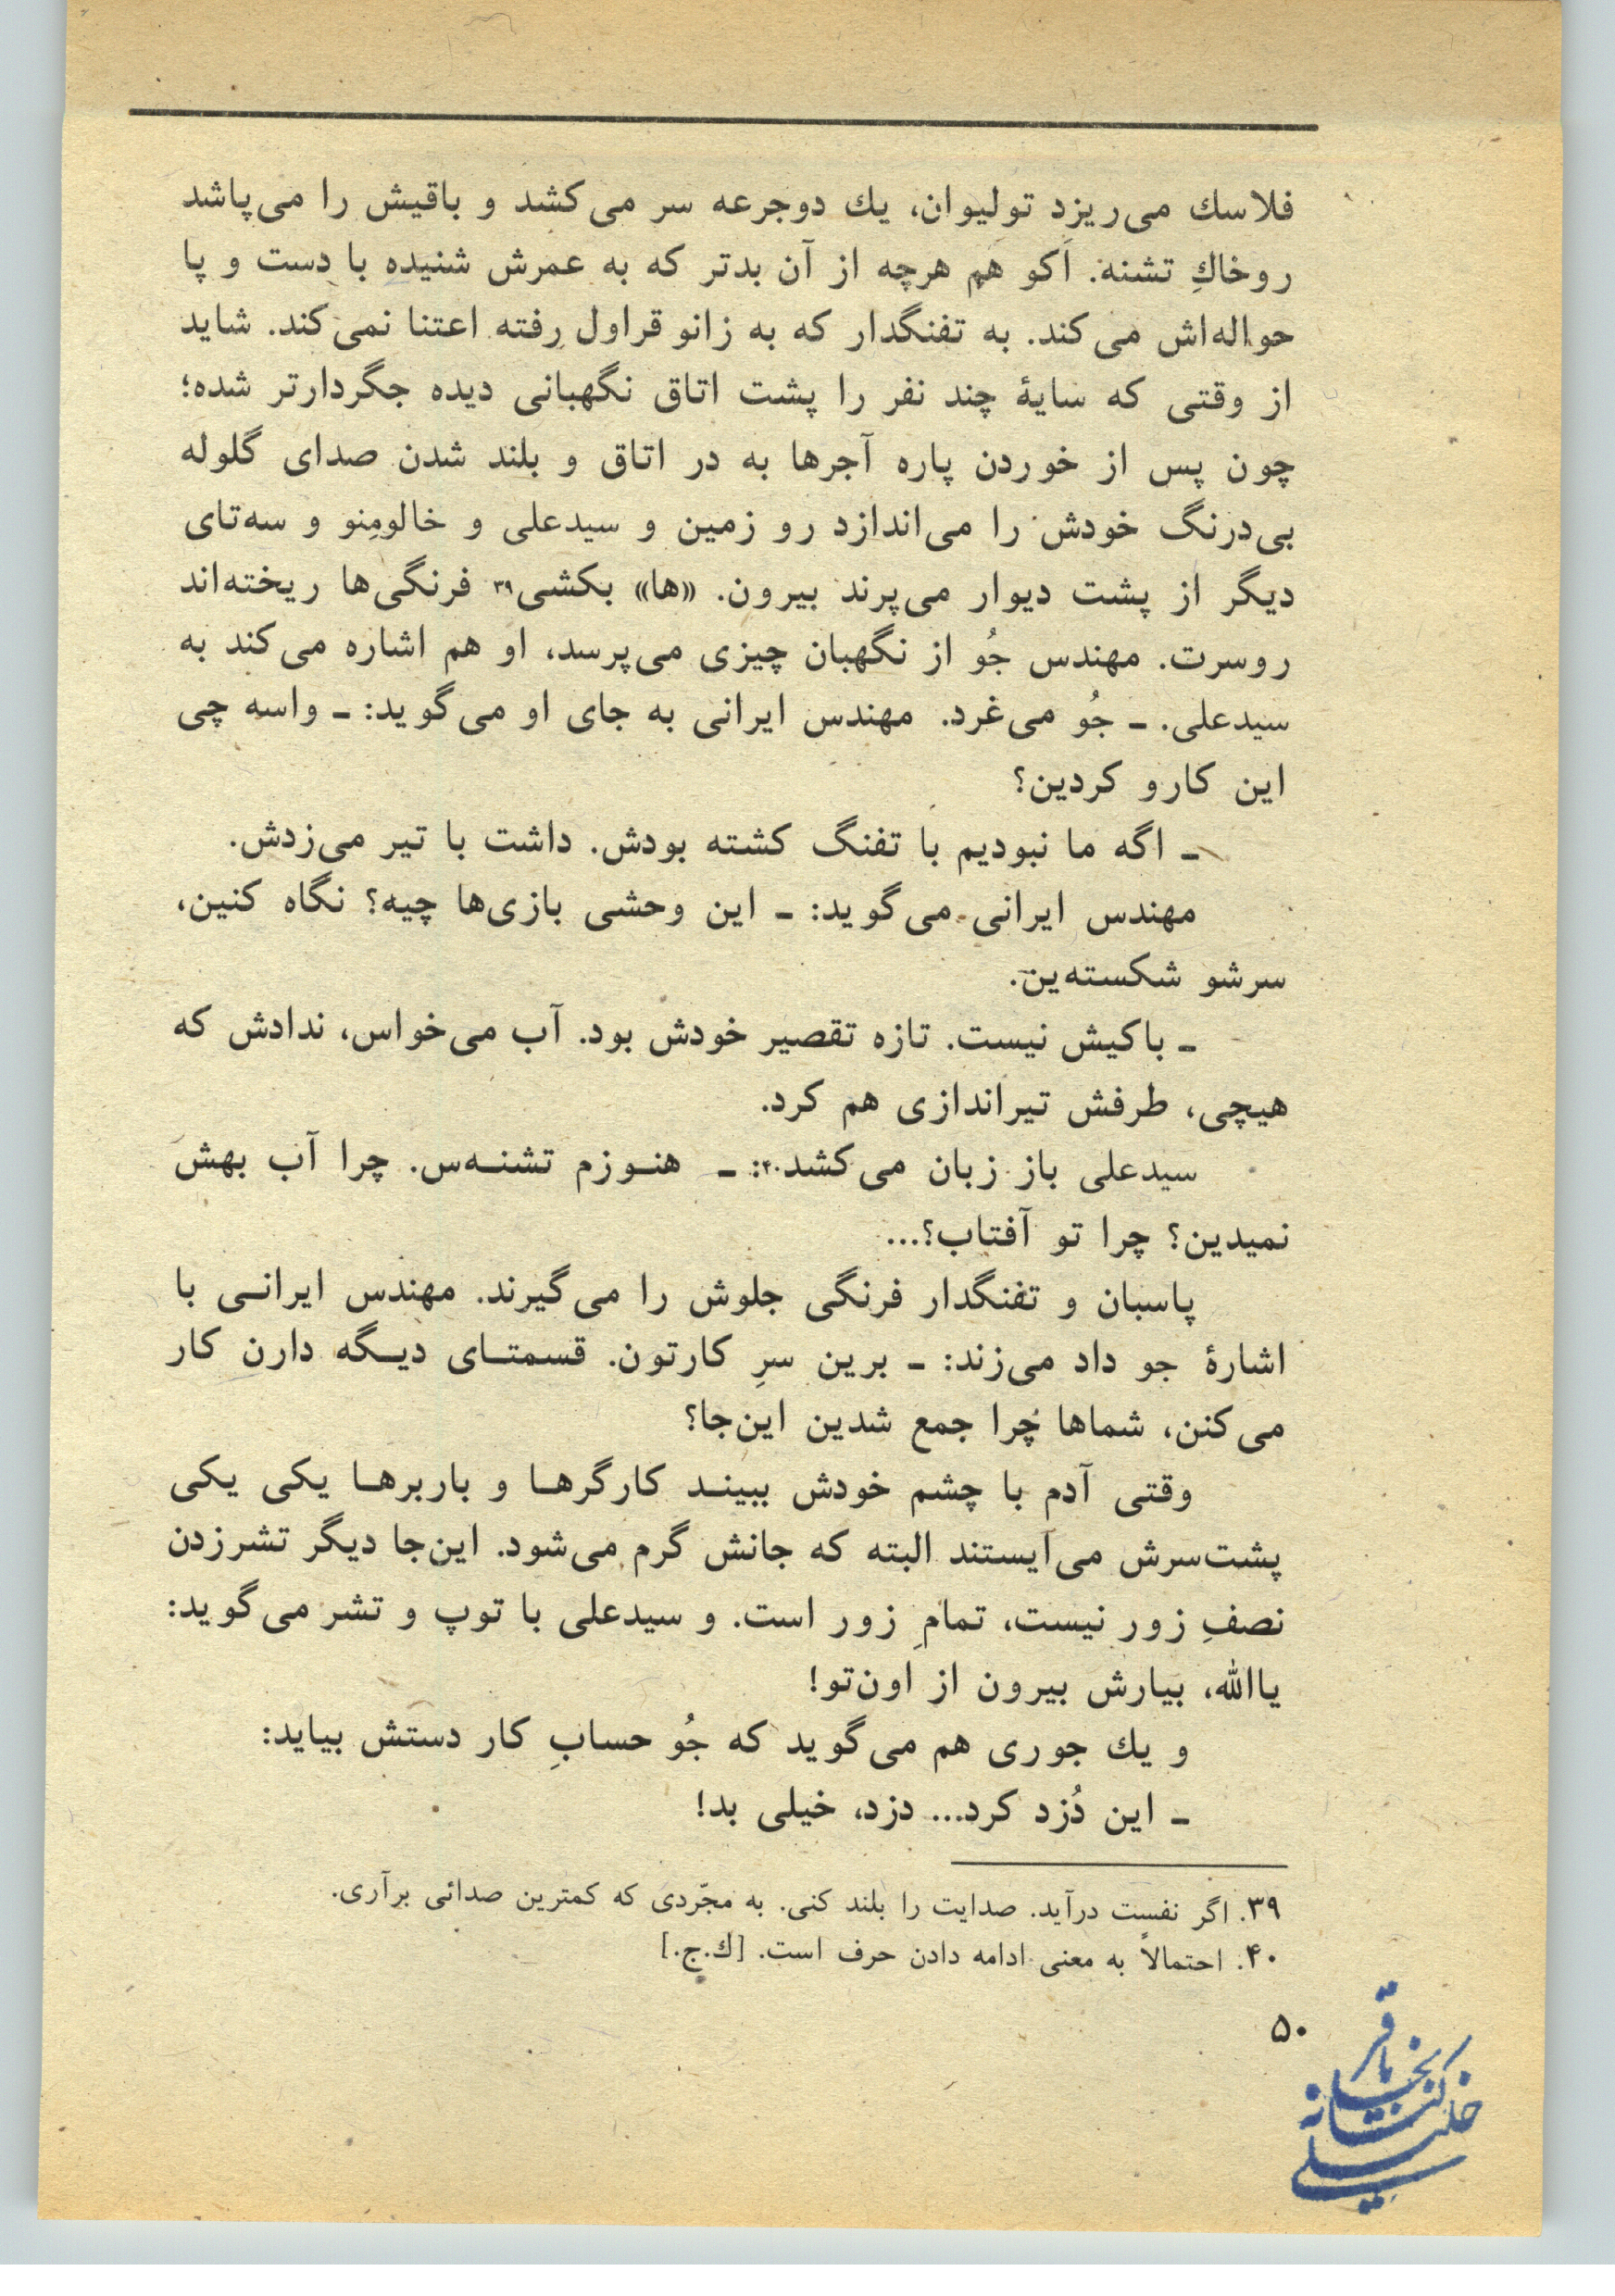 فلاسك می‌ریزد تولیوان، یك دوجرعه سر می‌کشد و باقیش را می‌پاشد
روخاكِ تشنه. اَکو هم هرچه از آن بدتر که به عمرش شنیده با دست و پا
حواله‌اش می‌کند. به تفنگدار که به زانو قراول رفته اعتنا نمی‌کند. شاید
از وقتی که سایهٔ چند نفر را پشت اتاق نگهبانی دیده جگردارتر شده؛
چون پس از خوردن پاره آجرها به در اتاق و بلند شدن صدای گلوله
بی‌درنگ خودش را می‌اندازد رو زمین و سیدعلی و خالومِنو و سه‌تای
دیگر از پشت دیوار می‌پرند بیرون. «ها» بکشی۳۹ فرنگی‌ها ریخته‌اند
روسرت. مهندس جُو از نگهبان چیزی می‌پرسد، او هم اشاره می‌کند به
سیدعلی. ـ جُو می‌غرد. مهندس ایرانی به جای او می‌گوید: ـ واسه چی
این کارو کردین؟
ـ اگه ما نبودیم با تفنگ کشته بودش. داشت با تیر می‌زدش.
مهندس ایرانی می‌گوید: ـ این وحشی بازی‌ها چیه؟ نگاه کنین،
سرشو شکسته‌ین.
ـ باکیش نیست. تازه تقصیر خودش بود. آب می‌خواس، ندادش که
هیچی، طرفش تیراندازی هم کرد.
سیدعلی باز زبان می‌کشد۴۰: ـ هنـوزم تشنـه‌س. چرا آب بهش
نمیدین؟ چرا تو آفتاب؟...
پاسبان و تفنگدار فرنگی جلوش را می‌گیرند. مهندس ایرانـی با
اشارهٔ جو داد می‌زند: ـ برین سرِ کارتون. قسمتـای دیـگه دارن کار
می‌کنن، شماها چرا جمع شدین این‌جا؟
وقتی آدم با چشم خودش ببینـد کارگرهـا و باربرهـا یکی یکی
پشت‌سرش می‌ایستند البته که جانش گرم می‌شود. این‌جا دیگر تشرزدن
نصفِ زور نیست، تمامِ زور است. و سیدعلی با توپ و تشر می‌گوید:
یاالله، بیارش بیرون از اون‌تو!
و یك جوری هم می‌گوید که جُو حسابِ کار دستش بیاید:
ـ این دُزد کرد... دزد، خیلی بد!
۳۹. اگر نفست درآید. صدایت را بلند کنی. به مجّردی که کمترین صدائی برآری.
۴۰. احتمالاً به معنی ادامه دادن حرف است. [ك.ج.]
۵۰
کتابخانه
باقر
خلیلی